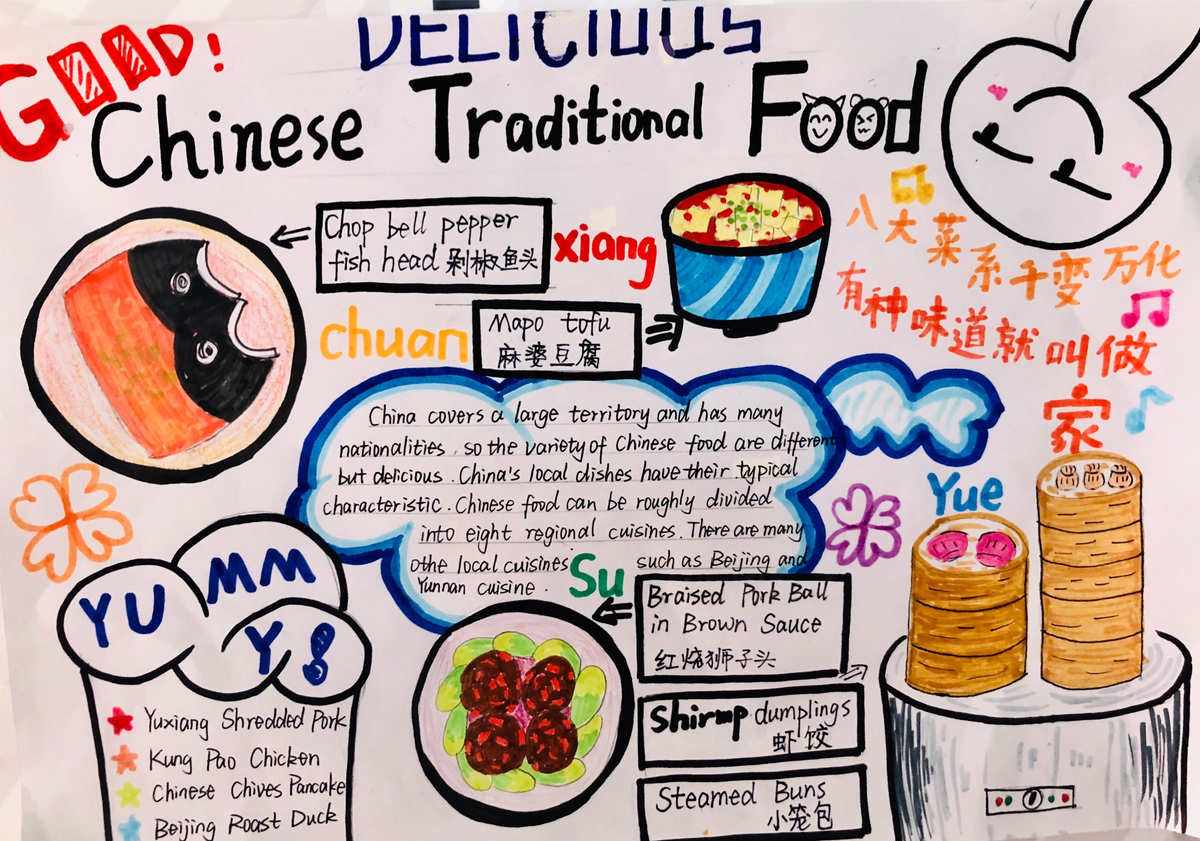 GOOD!
DELICIOUS
Chinese Traditional Food
Chop bell pepper
fish head 剁椒鱼头
xiang
chuan
Mapo tofu
麻婆豆腐
八大菜系千变万化
有种味道就叫做
家
China covers a large territory and has many
nationalities, so the variety of Chinese food are different
but delicious. China's local dishes have their typical
characteristic. Chinese food can be roughly divided
into eight regional cuisines. There are many
othe local cuisines such as Beijing and
Yunnan cuisine.
Su
Yue
YU
MM
Y!
Yuxiang Shredded Pork
Kung Pao Chicken
Chinese Chives Pancake
Beijing Roast Duck
Braised Pork Ball
in Brown Sauce
红烧狮子头
Shirmp dumplings
虾饺
Steamed Buns
小笼包